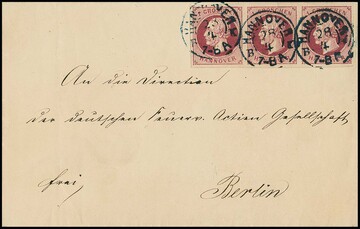 HANNOVER
28
4
7-8 A
HANNOVER
28
4
7-8 A
HANNOVER
28
4
7-8 A
GROSCHEN
HANNOVER
An die Direction
der deutschen Feuerv. Actien Gesellschaft
frei,
Berlin